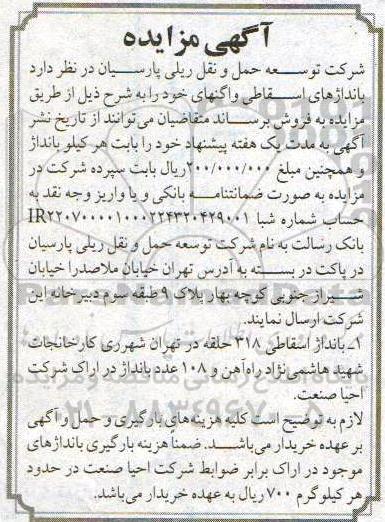 آگهی مزایده
شرکت توسعه حمل و نقل ریلی پارسیان در نظر دارد
بانداژهای اسقاطی واگنهای خود را به شرح ذیل از طریق
مزایده به فروش برساند متقاضیان می توانند از تاریخ نشر
آگهی به مدت یک هفته پیشنهاد خود را بابت هر کیلو بانداژ
و همچنین مبلغ ۲۰۰/۰۰۰/۰۰۰ریال بابت سپرده شرکت در
مزایده به صورت ضمانتنامه بانکی و یا واریز وجه نقد به
حساب شماره شبا IR۲۲۰۷۰۰۰۰۱۰۰۰۲۲۴۳۲۰۴۲۹۰۰۱
بانک رسالت به نام شرکت توسعه حمل و نقل ریلی پارسیان
در پاکت در بسته به آدرس تهران خیابان ملاصدرا خیابان
شیراز جنوبی کوچه بهار پلاک ۹ طبقه سوم دبیرخانه این
شرکت ارسال نمایند.
۱- بانداژ اسقاطی ۳۱۸ حلقه در تهران شهرری کارخانجات
شهید هاشمی نژاد راه آهن و ۱۰۸ عدد بانداژ در اراک شرکت
احیا صنعت.
لازم به توضیح است کلیه هزینه های بارگیری و حمل و آگهی
بر عهده خریدار می باشد. ضمنا هزینه بارگیری بانداژهای
موجود در اراک برابر ضوابط شرکت احیا صنعت در حدود
هر کیلوگرم ۷۰۰ ریال به عهده خریدار می باشد.
۰۲۱-۸۸۳۴۹۶۷۰-۵